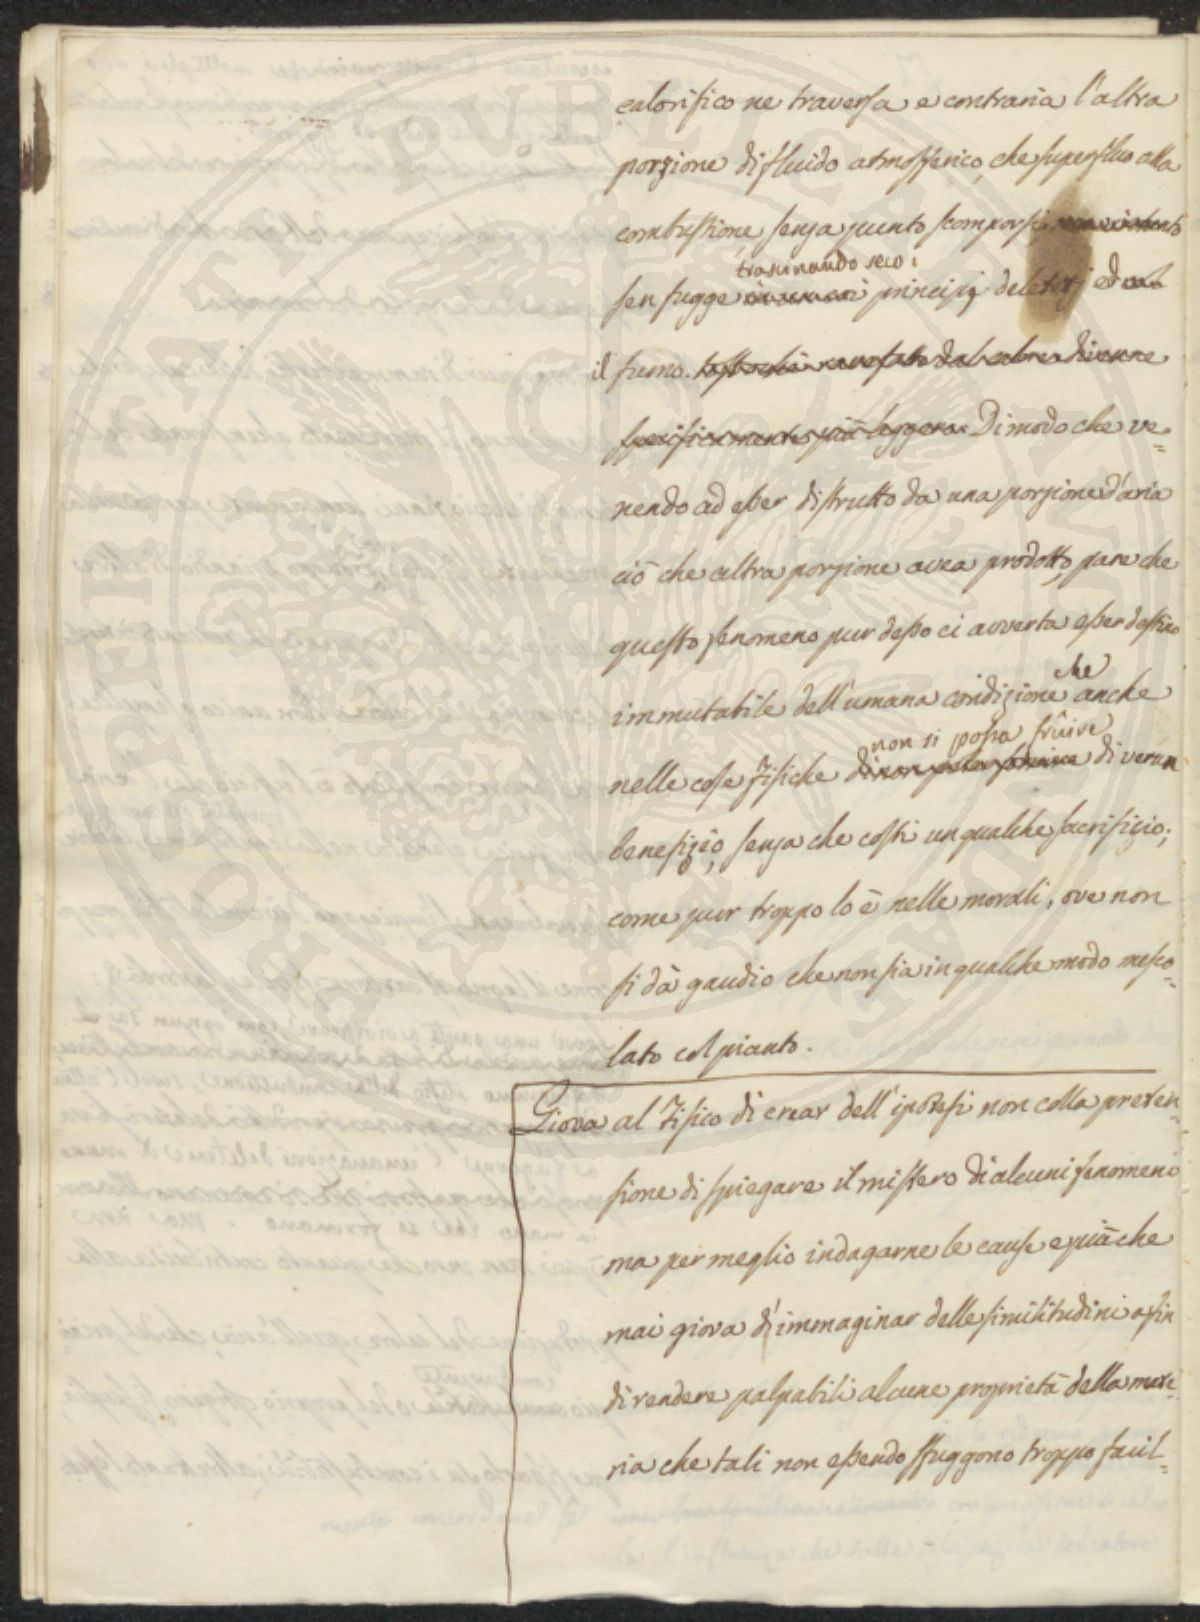 calorifico ne traversa e contraria l'altra
porzione di fluido atmosferico, che superfluo alla
combustione, senza punto scomporsi
trascinando seco i
sen fugge principj deleterj ed
il fumo. tostochè rarefatto dal calore diviene
specificamente più leggero. Dimodo che ve=
nendo ad esser distrutto da una porzione d'aria
ciò che altra porzione avea prodotto, pare che
questo fenomeno pur desso ci avverta esser destino
che
immutabile dell'umana condizione anche
non si possa früire
nelle cose fisiche di non poter fruire di verun
benefizio, senza che costi un qualche sacrifizio;
come pur troppo lo è nelle morali, ove non
si dà gaudio che non sia in qualche modo mesco=
lato col pianto.
Giova al Fisico di crear dell'ipotesi non colla preten=
sione di spiegare il mistero di alcuni fenomeni
ma per meglio indagarne le cause e più che
mai giova d'immaginar delle similitudini afin
di rendere palpabili alcune proprietà della mate=
ria che tali non essendo sfuggono troppo facil=